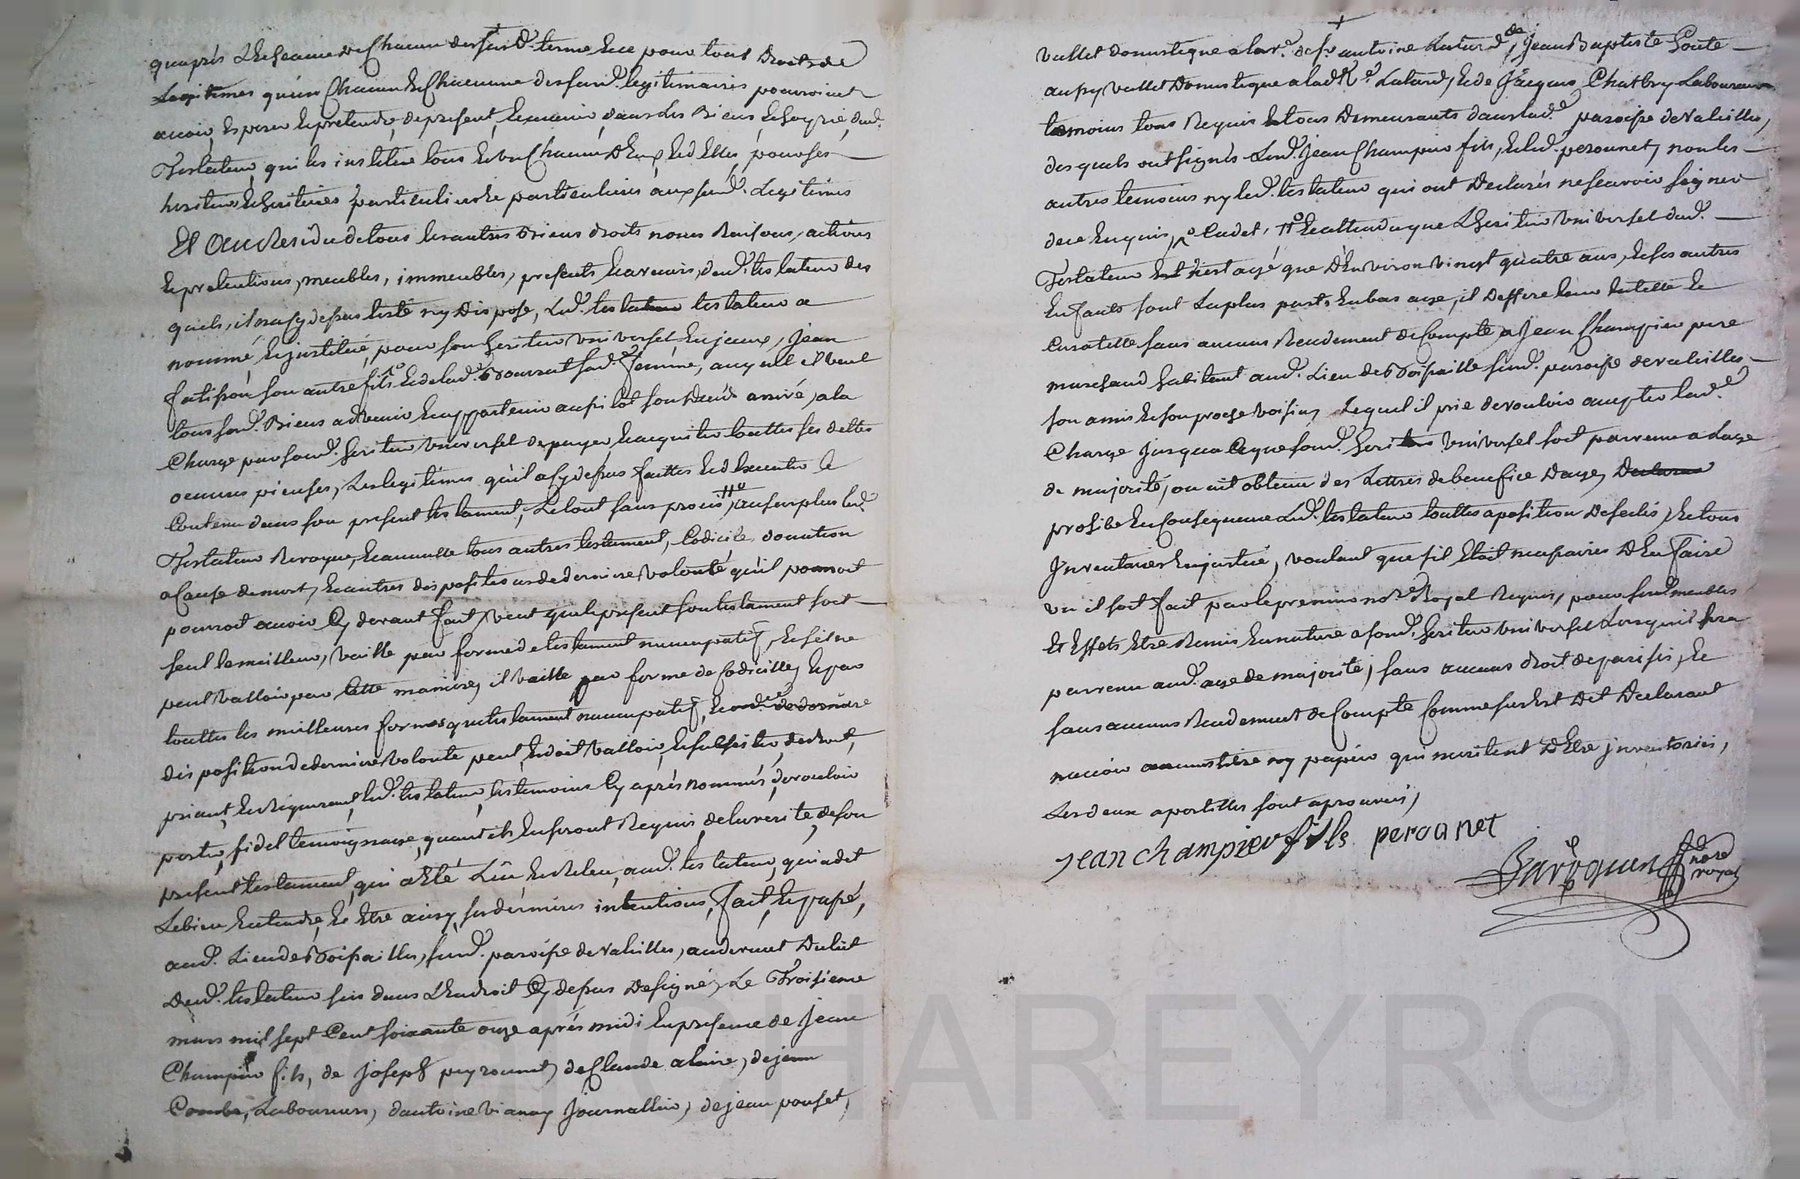 qu'après L'Escheance de Chacun desd. termes Ece pour tout Droits de
Legitimes qu'un Chacun Et Chacunne desd. legitimaires pourroient
avoir, Esperer Et pretendre, de present, Et avenir, dans Les Biens, dud.
Testateur, qui les institue tous Et un Chacun D'Eux Ed'Elles, pour ses
heritiers Et heritieres particuliers Et particulieres aux susd. Legitimes
Et Au Residu de tous les autres Biens droits noms Raisons, actions
Et pretentions, meubles, immeubles, presents, Et avenirs, dud. testateur des
quels, il n'a cy dessus testé ny Disposé, Led. testateur testateur a
nommé, Et institué, pour son heritier universel, Jean
fatisson son autre fils Et de lad. sad. femme, auquel il veut
tous sesd. Biens advenir Et appartenir aussitôt son Decès arrivé, a la
Charge par sond. heritier universel de payer, Et acquitter touttes ses dettes
oeuvres pieuses, Les legitimes qu'il a cy dessus faittes Et d'Executer le
Contenu dans son present testament, Le tout sans procès, au surplus led.
Testateur Revoque, Et annulle tous autres testament, Codicile, donation
a Cause de mort, Et autres dispositions de derniere Volonté qu'il pourroit
pourroit avoir Cy devant fait, Veut que le present son testament soit
seul le meilleur, Vaille par forme de testament nuncupatif, Et s'il ne
peut Valloir par Cette maniere, il Vaille par forme de Codicille, Et par
touttes les meilleures formes que testament nuncupatif, de derniere
disposition de derniere Volonté peut Et doit Valloir, Et subsister, de droit,
priant, Et Requerant, led. testateur, les temoins Cy après nommés, de vouloir
porter, fidel temoignage, quant ils En seront Requis, de la verité, de son
present testament, qui a Eté Lû, Et Relu, aud. testateur, qui a dit
Le bien Entendre, Et Etre ainsy, ses dernieres intentions, fait, Et passé,
aud. Lieu de Boissailles, susd. paroisse de Valeilles, au devant Du lit
Dud. testateur sis dans L'Endroit Cy dessus Designé, Le Troisieme
mars mil sept Cent soixante onze après midi En presence de Jean
Champier fils, de Joseph peyronnet, de Claude alaire, de jean
Combe, Laboureurs, d'antoine Vianay Journallier, de jean pouset,
Vallet domestique a lad. de sr antoine Latard, de Jean Baptiste Goute
aussy Vallet Domestique a lad. Latard, Et de Jacques Chatbry Laboureur
temoins tous Requis Et tous Demeurants dans lad. paroisse de Valeilles,
des quels ont signés Led. Jean Champier fils, Et led. peronnet, non les
autres temoins ny led. testateur qui ont Declarés ne scavoir signer
de ce Enquis, Cadet, Et attendu que L'heritier Universel dud.
Testateur n'est agé que D'Environ vingt quatre ans, Et ses autres
Enfants sont La plus part, En bas age, il Deffere leur tutelle Et
Curatelle sans aucuns Rendement de Compte, a Jean Champier pere
marchand habitant aud. Lieu de Boissaille susd. paroisse de valeilles
son amis Et son proche voisin, Lequel il prie de vouloir accepter lad.
Charge jusqua Ceque sond. heritier Universel soit parvenu a L'age
de majorité, ou ait obtenu des Lettres de benefice D'age,
prohibe En Consequence Led. testateur touttes aposition de scelés, Et tous
Inventaires En justice, voulant que s'il Etoit necessaires D'En faire
un il soit fait par le premier nore Royal Requis, pour sesd. meubles
Et Effets Etre Remis En nature a sond. heritier Universel Lorsqu'il sera
parvenu aud. age de majorité, sans aucuns droit, Et
sans aucuns Rendement de Compte Comme sus Est Dit Declarant
n'avoir aucuns titre ny papier qui meritent D'Etre inventoriés,
Les deux apostilles sont aprouvés,
jean champier fils peronet
nore royal
CHAREYRON